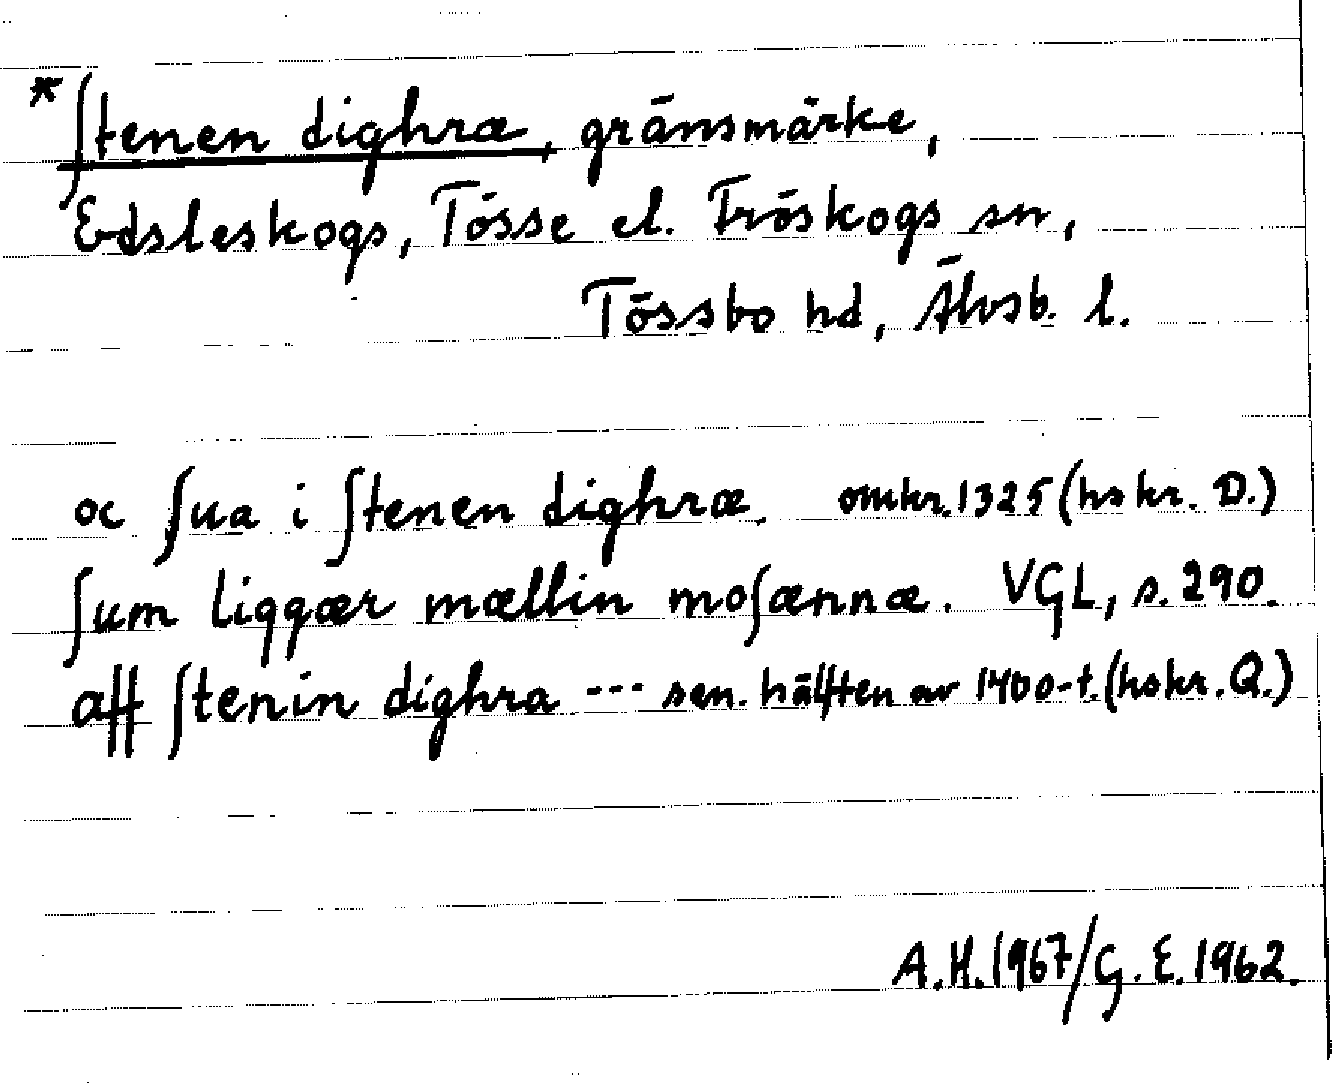 *ſtenen dighræ, gränsmärke,
Edsleskogs, Tösse el. Fröskogs sn,
Tössbo hd, Älvsb. l.
oc ſua i ſtenen dighræ. omkr. 1325 (hskr. D.)
ſum liggær mællin moſænnæ. VGL, s. 290.
aff ſtenin dighra --- sen. hälften av 1400-t. (hskr. Q.)
A.H. 1967/G.E. 1962.